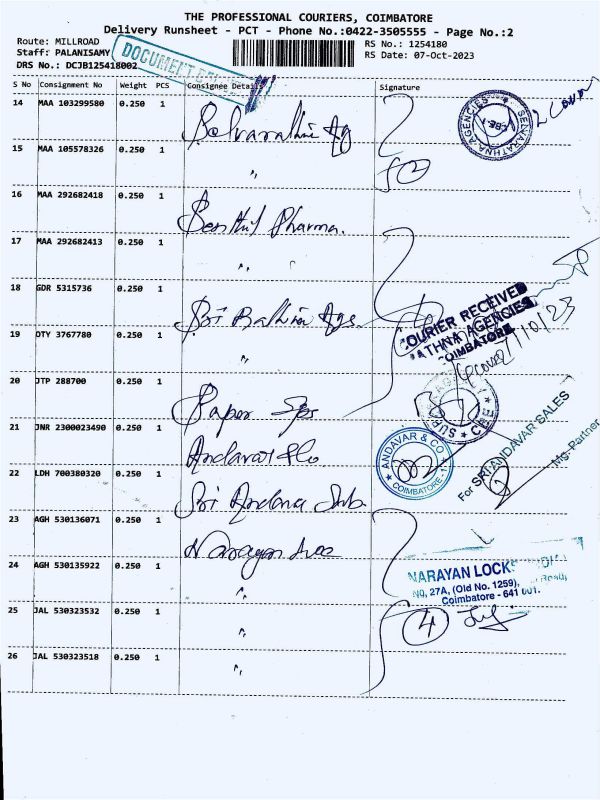 THE PROFESSIONAL COURIERS, COIMBATORE
Delivery Runsheet - PCT - Phone No.:0422-3505555 - Page No.:2
Route: MILLROAD
RS No.: 1254180
Staff: PALANISAMY
RS Date: 07-Oct-2023
DRS No.: DCJB125418002
DOCUMENT
S No Consignment No Weight PCS Consignee Details Signature
14 MAA 103299580 0.250 1
SELVARATHNA AGENCIES
15 MAA 105578326 0.250 1 "
16 MAA 292682418 0.250 1 Senthil Pharma.
17 MAA 292682413 0.250 1 "
18 GDR 5315736 0.250 1 Sri Rathna Ags
COURIER RECEIVED
ATHNA AGENCIES
COIMBATORE
19 DTY 3767780 0.250 1 "
20 JTP 288700 0.250 1 Paper
21 JNR 2300023490 0.250 1 Andavar & Co
ANDAVAR & CO
COIMBATORE-1
For SRI ANDAVAR SALES
Mg. Partner
22 LDH 700380320 0.250 1 Sri
23 AGH 530136071 0.250 1 Narayan
24 AGH 530135922 0.250 1 "
NARAYAN LOCK
NO, 27A, (Old No. 1259), Road,
Coimbatore - 641 001.
25 JAL 530323532 0.250 1 "
4
26 JAL 530323518 0.250 1 "